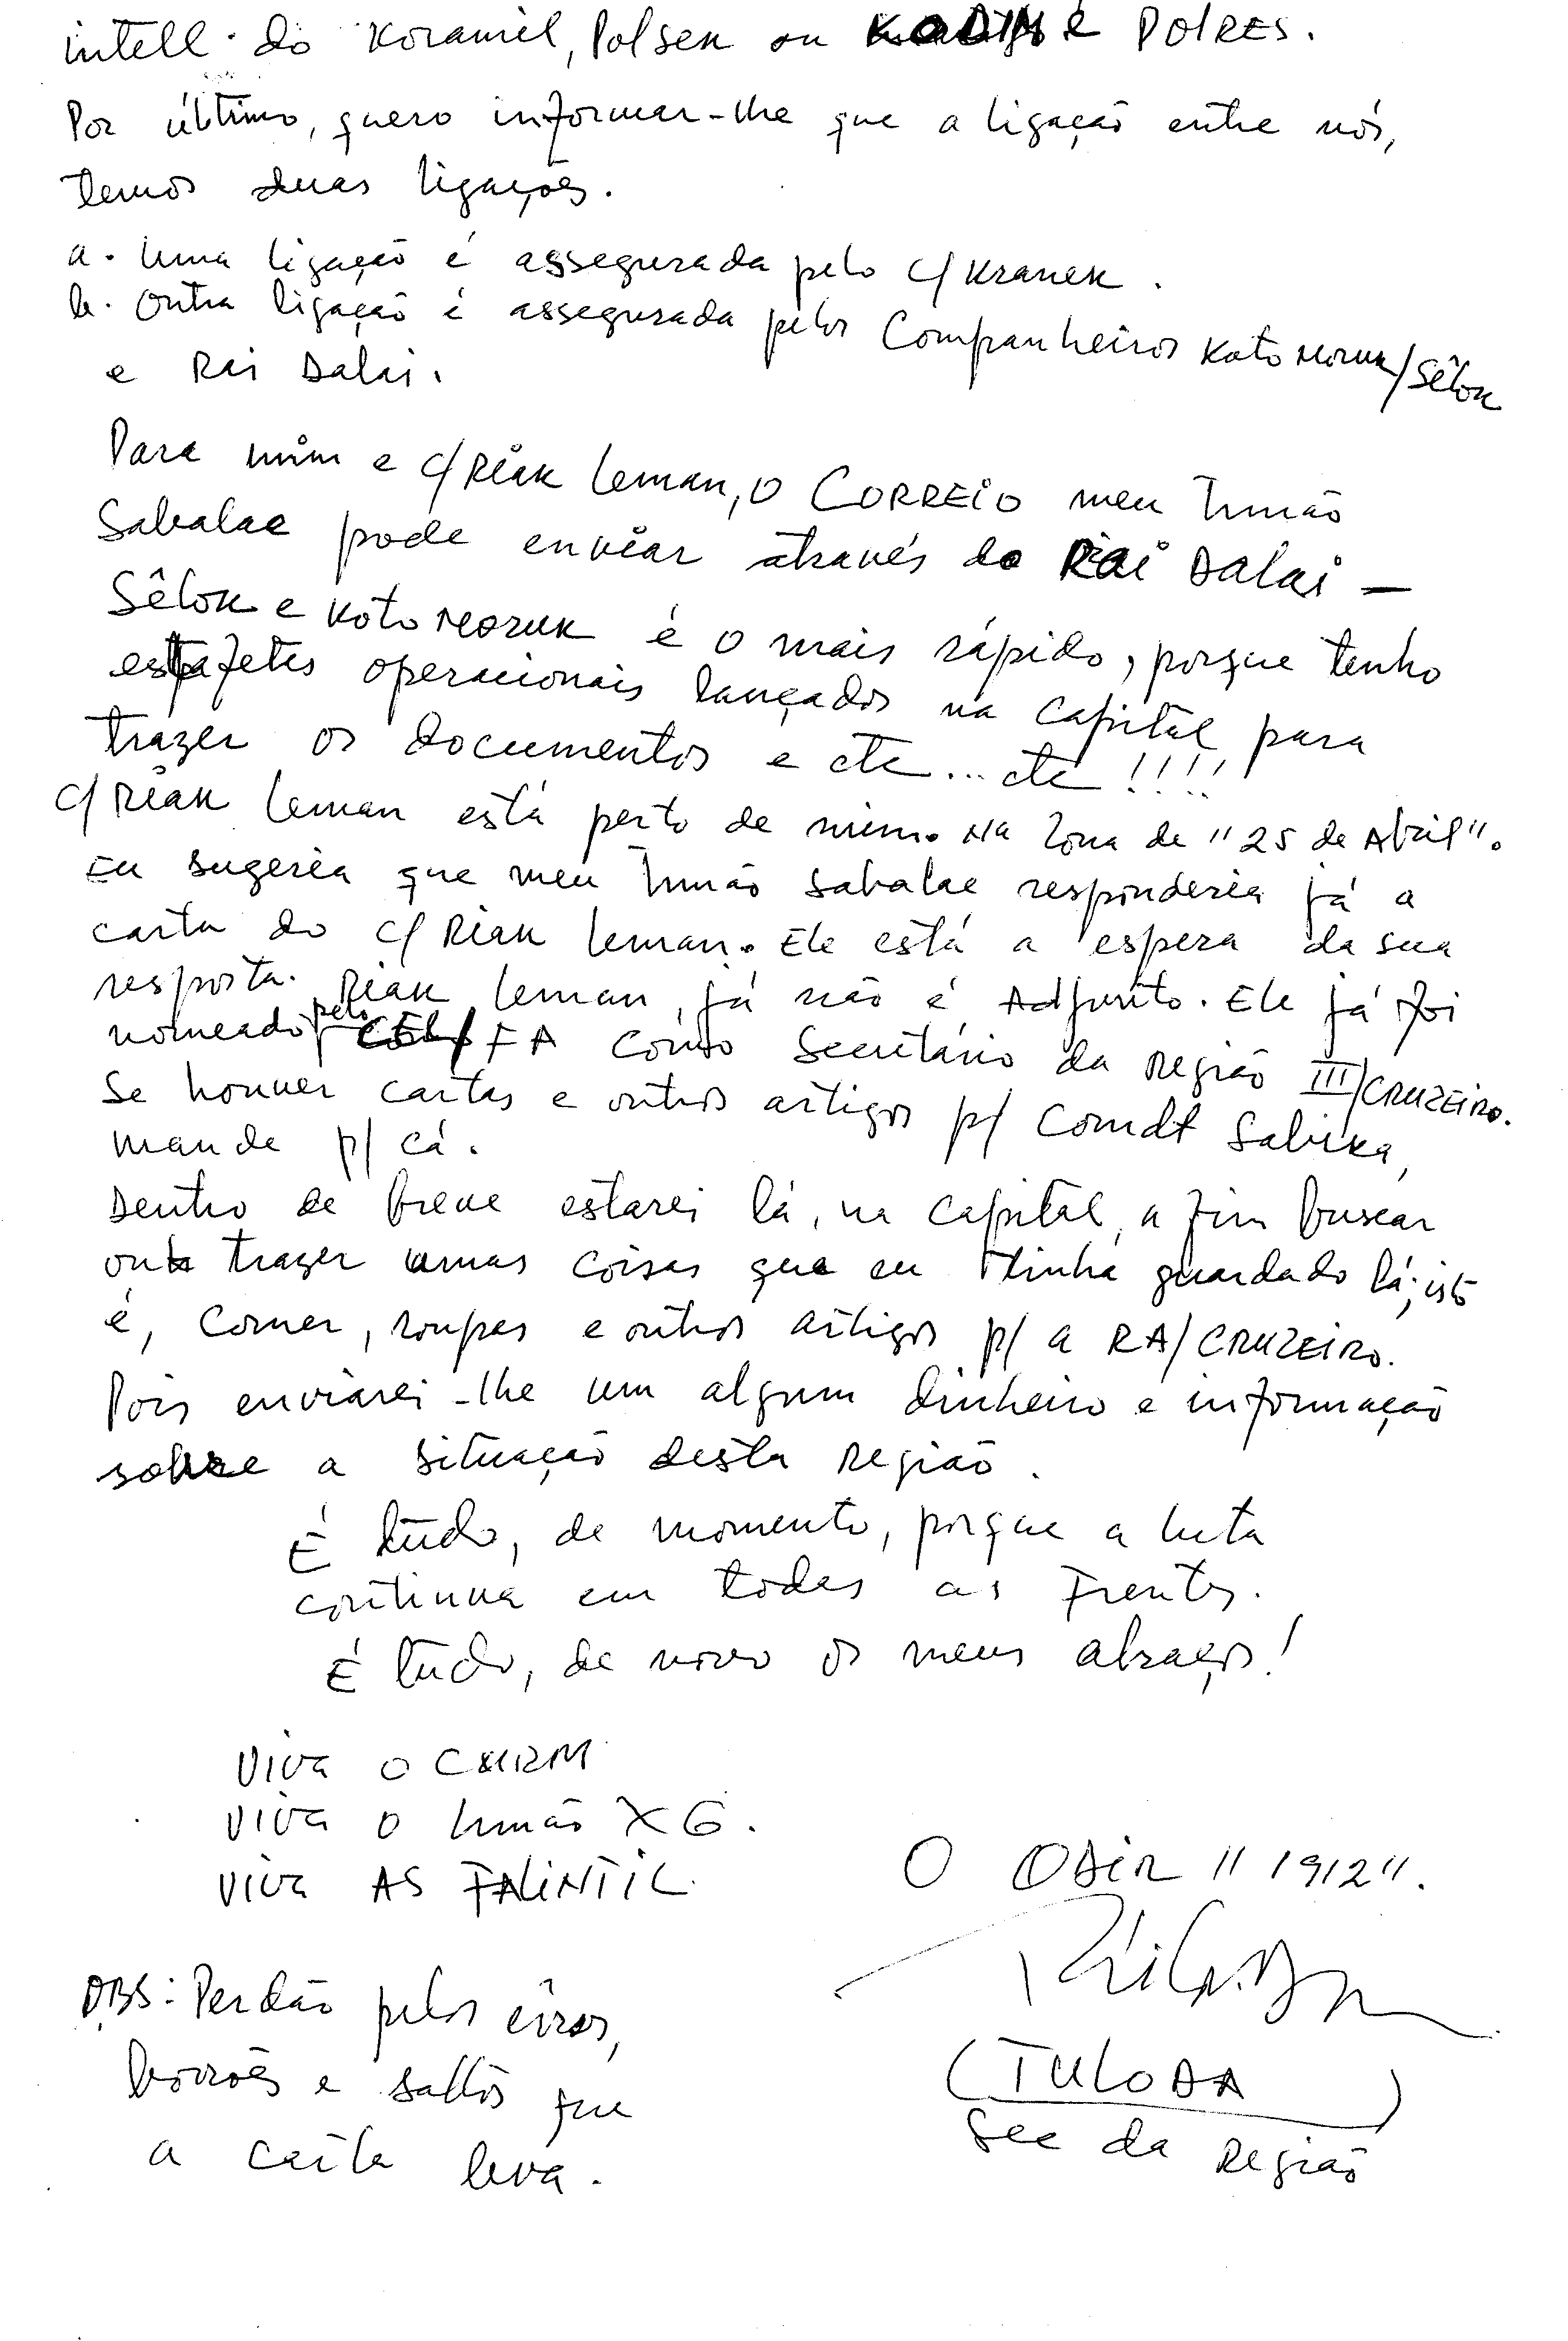 intell. do Koramil, Polsek ou KODIM e POLRES.
Por último, quero informar-lhe que a ligação entre nós,
temos duas ligações.
a. Uma ligação é assegurada pelo c/ Kranek.
b. Outra ligação é assegurada pelos Companheiros Koto Moruk/Sêlok
e Rai Dalai.
Para mim e c/ Riak Leman, o CORREIO meu Irmão
Sabalae pode enviar através do RAI DALAI —
Sêlok e Koto Moruk é o mais rápido, porque tenho
estafetes operacionais lançados na capital para
trazer os documentos e etc... etc!!!!
c/ Riak Leman está perto de mim. Na Zona de "25 de Abril".
Eu sugeria que meu Irmão Sabalae responderia já a
carta do c/ Riak Leman. Ele está a espera da sua
resposta. Riak Leman, já não é Adjunto. Ele já foi
nomeado pelo CEL/FA como Secretário da Região III/CRUZEIRO.
Se houver cartas e outros artigos p/ Comdt Sabika,
mande p/ cá.
Dentro de breve estarei lá, na capital, a fim buscar
ou trazer umas coisas que eu tinha guardado lá; isto
é, comer, roupas e outros artigos p/ a RA/CRUZEIRO.
Pois enviarei-lhe um algum dinheiro e informação
sobre a situação desta Região.
É tudo, de momento, porque a luta
continua em todas as Frentes.
É tudo, de novo os meus abraços!
Viva o CNRM
Viva o Irmão XG.
Viva AS FALINTIL
O ODIR "1912".
(TULODA)
Sec da Região
OBS: Perdão pelos êrros,
borrões e saltos que
a carta leva.